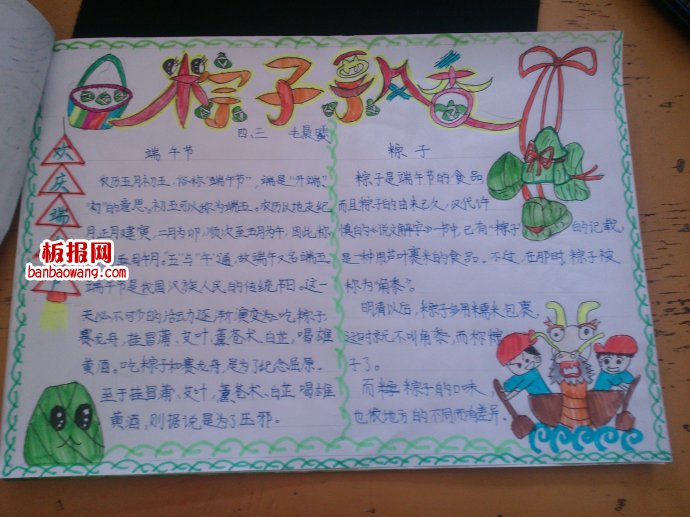 粽子飘香
四、三 毛晨
欢
庆
端
板报网
banbaowang.com
端午节
农历五月初五,俗称"端午节",端是"开端"
"初"的意思。初五可以称为端五。农历以地支纪
月正月建寅,二月为卯,顺次至五月为午,因此称
五月午月。"五"与"午"通,故端午又名端五。
端午节是我国汉族人民的传统节日。这一
天必不可少的活动逐渐演变为:吃粽子,
赛龙舟,挂菖蒲、艾叶、薰苍术、白芷,喝雄
黄酒。吃粽子和赛龙舟,是为了纪念屈原。
至于挂菖蒲、艾叶,薰苍术、白芷,喝雄
黄酒,则据说是为了压邪。
粽子
粽子是端午节的食品
而且粽子的由来已久,汉代许
慎的《说文解字》一书中,已有"粽子 的记载,
是一种用芦叶裹米的食品。不过,在那时,粽子被
称为"角黍"。
明清以后,粽子多用糯米包裹,
这时就不叫角黍,而称粽
子了。
而 粽子的口味,
也依地方的不同而有差异。